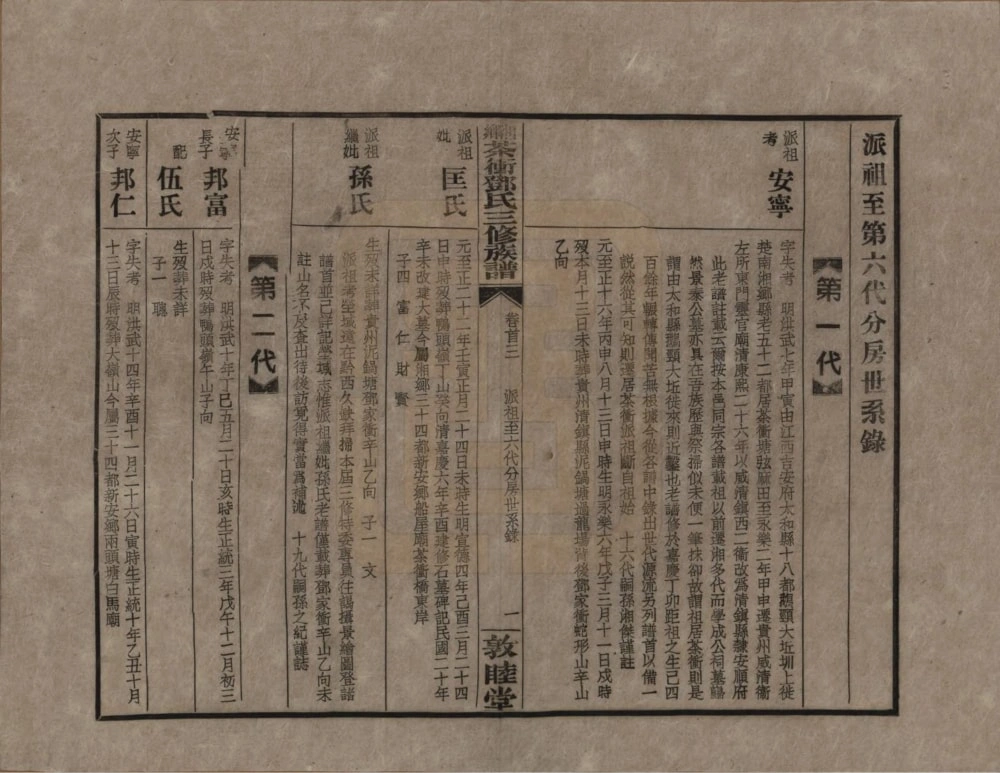 派祖至第六代分房世系錄
第一代
派祖考 安寧
字失考 明洪武七年甲寅由江西吉安府太和縣十八都鵝頸大坵圳上徙
楚南湘鄉縣老五十二都居茶衝塘弦麻田至永樂二年甲申遷貴州威清衛
左所東門靈官廟清康熙二十六年以威清鎮西二衛改為清鎮縣隸安順府
此老譜註載云爾按本邑同宗各譜載祖以前遷湘多代而學成公祠墓歸
然景泰公墓亦具在吾族歷與祭掃似未便一筆抹卻故謂祖居茶衝則是
謂由太和縣鵝頸大坵徙來則近鑿也老譜修於嘉慶丁卯距祖之生已四
百餘年輾轉傳聞苦無根據今從各譜中錄出世代源流另列譜首以備一
說然從其可知則遷居茶衝派祖斷自祖始 十六代嗣孫湘傑謹註
元至正十六年丙申八月十三日申時生明永樂六年戊子三月十一日戌時
歿本月十三日未時葬貴州清鎮縣泥鍋塘過龍場背後鄧家衝蛇形山辛山
乙向
茶衝鄧氏三修族譜
卷首三 派祖至六代分房世系錄
一 敦睦堂
派祖妣 匡氏
元至正二十二年壬寅正月二十四日未時生明宣德四年己酉三月二十四
日申時歿葬鴨頭嶺壬山丙向清嘉慶六年辛酉建修石墓碑記民國二十年
辛未改建大墓今屬湘鄉三十四都新安鄉船屋廟茶衝橋東岸
子四 富 仁 財 賓
派祖繼妣 孫氏
生歿未詳葬貴州泥鍋塘鄧家衝辛山乙向 子一 文
派祖考塋城遠在黔西久缺拜掃本屆三修特委專員往謁攝景繪圖登諸
譜首並已詳記塋域志惟派祖繼妣孫氏老譜僅載葬鄧家衝辛山乙向未
註山名不及查出待後訪覓得實當為補滿 十九代嗣孫之紀謹誌
第二代
安寧長子 邦富
字失考 明洪武十年丁巳五月二十日亥時生正統三年戊午十二月初三
日戌時歿葬鴨頭嶺午山子向
配 伍氏
生歿葬未詳
子一 聰
安寧次子 邦仁
字失考 明洪武十四年辛酉十一月二十六日寅時生正統十年乙丑十月
十三日辰時歿葬大嶺山今屬三十四都新安鄉兩頭塘白馬廟